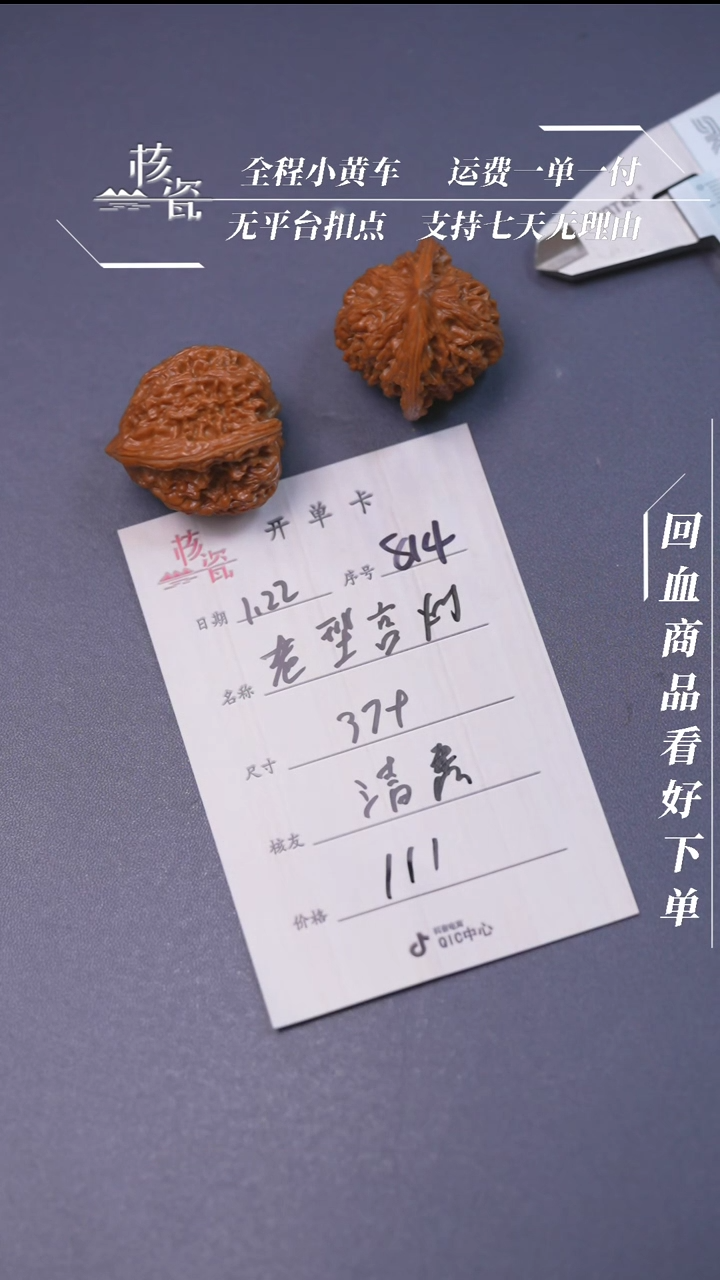 核瓷
全程小黄车 运费一单一付
无平台扣点 支持七天无理由
回血商品看好下单
核瓷
开单卡
日期 1.22 序号 814
名称 老型官帽
尺寸 37+
核友 清秀
价格 111
抖音电商
QIC中心